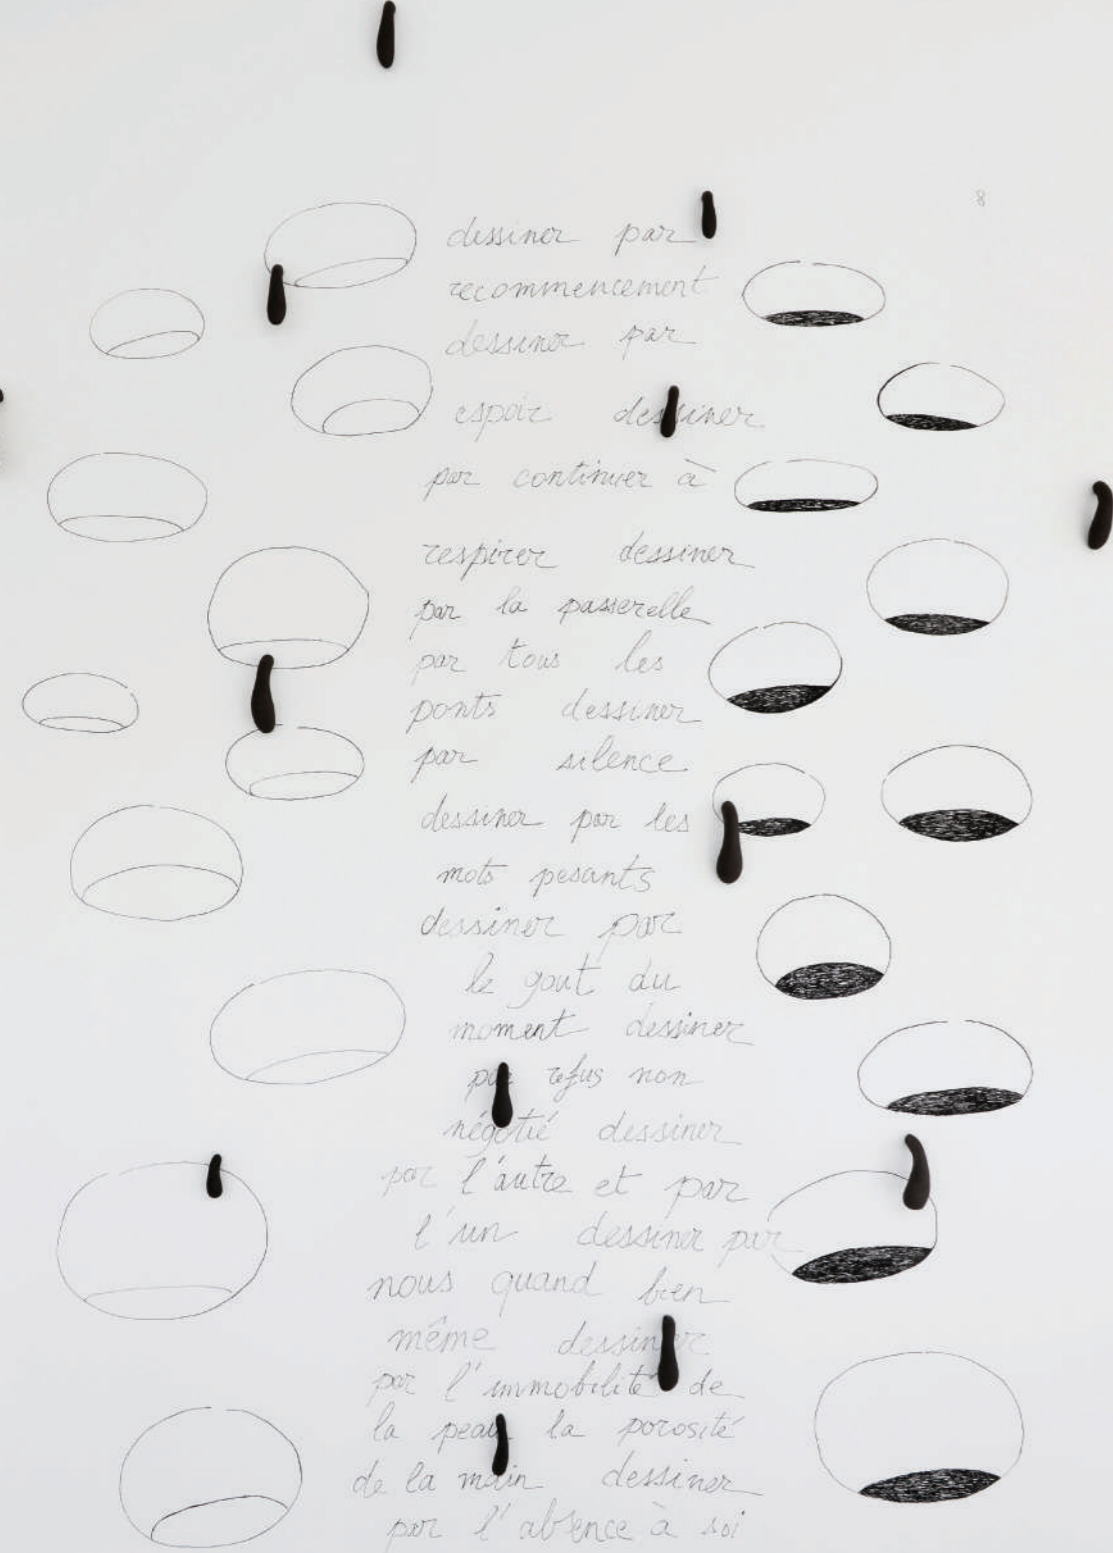 8
dessiner par
recommencement
dessiner par
espoir dessiner
par continuer à
respirer dessiner
par la passerelle
par tous les
ponts dessiner
par silence
dessiner par les
mots pesants
dessiner par
le gout du
moment dessiner
par refus non
négotié dessiner
par l'autre et par
l'un dessiner par
nous quand bien
même dessiner
par l'immobilité de
la peau la porosité
de la main dessiner
par l'absence à soi